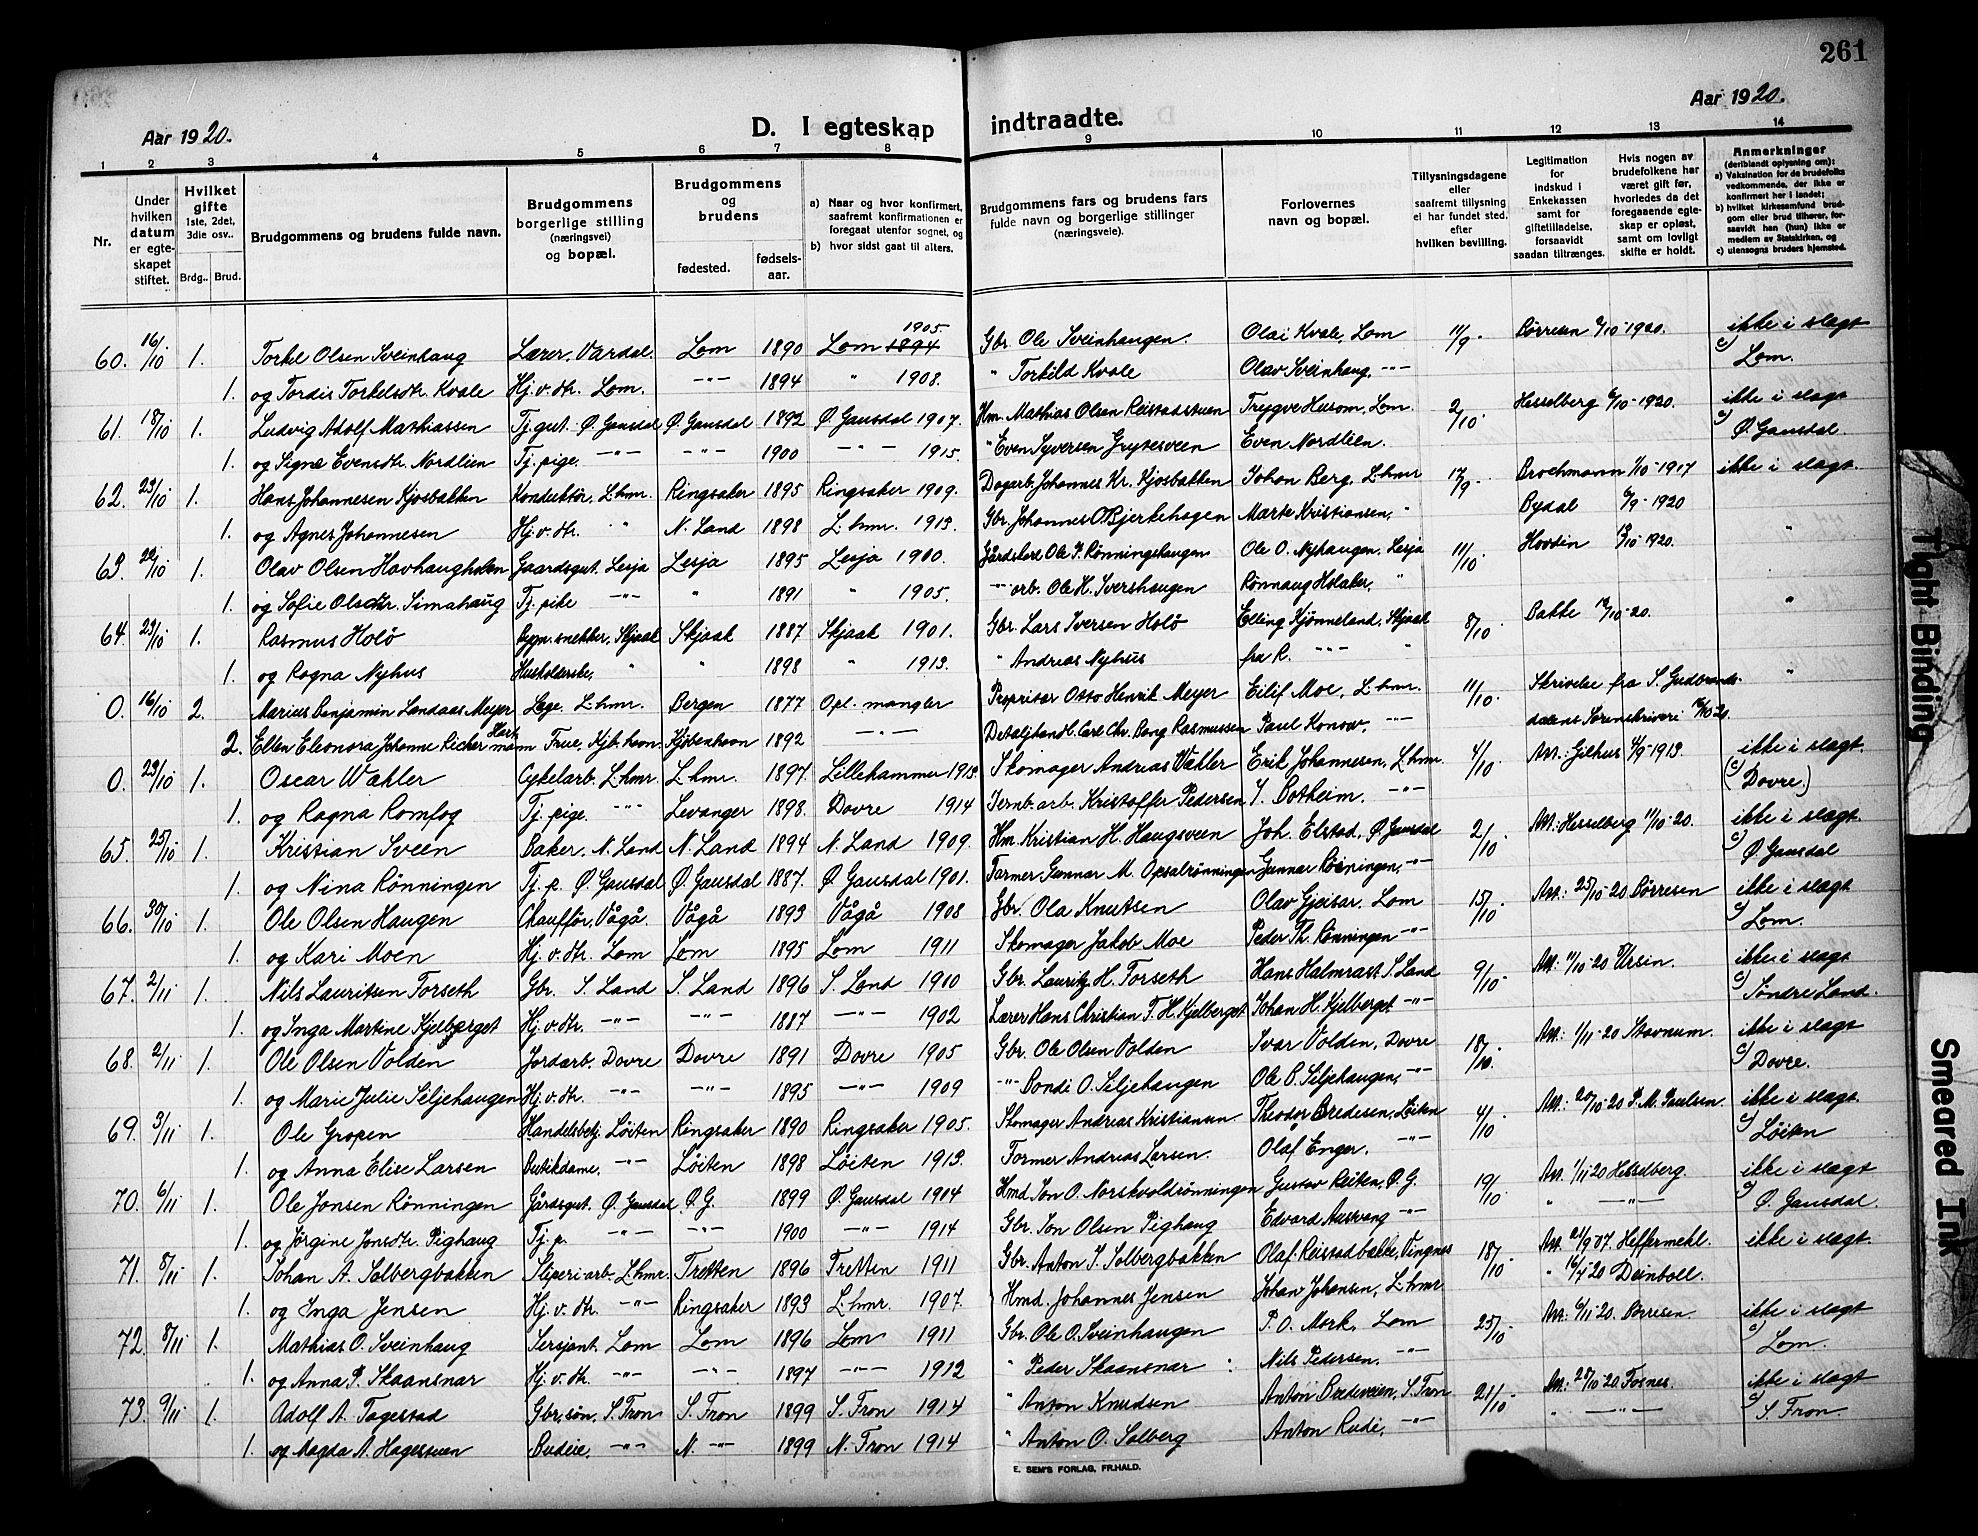 261
Aar 1920.
D. I egteskap indtraadte.
Aar 1920.
1 2 3 4 5 6 7 8 9 10 11 12 13 14
Nr.
Under hvilken datum er egteskapet stiftet.
Hvilket gifte 1ste, 2det, 3die osv..
Brdg.. Brud.
Brudgommens og brudens fulde navn.
Brudgommens borgerlige stilling (næringsvei) og bopæl.
Brudgommens og brudens
fødested. fødselsaar.
a) Naar og hvor konfirmert, saafremt konfirmationen er foregaat utenfor sognet, og
b) hvor sidst gaat til alters.
Brudgommens fars og brudens fars fulde navn og borgerlige stillinger (næringsveie).
Forlovernes navn og bopæl.
Tillysningsdagene eller saafremt tillysning ei har fundet sted. efter hvilken bevilling.
Legitimation for indskud i Enkekassen samt for giftetilladelse, forsaavidt saadan tiltrænges.
Hvis nogen av brudefolkene har været gift før, hvorledes da det foregaaende egteskap er opløst, samt om lovligt skifte er holdt.
Anmerkninger (deriblandt oplysning om): a) Vaksination for de brudefolks vedkommende, der ikke er konfirmert her i landet; b) hvilket kirkesamfund brudgom eller brud tilhører, forsaavidt han (hun) ikke er medlem av Statskirken, og c) utensogns bruders hjemsted.
60. 16/10 1. Torkel Olsen Sveinhaug Lærer, Vardal. Lom 1890 Lom 1894 1905. Gbr. Ole Sveinhaugen. Olai Kvale, Lom 11/9. Børresen 6/10-1920. ikke i slægt
1. og Tordis Torkelsdtr. Kvale Hj. v. dtr. Lom. -"- 1894 " 1908. " Torkild Kvale Olav Sveinhaug, -"- c) Lom.
61. 18/10 1. Ludvig Adolf Mathiassen Tj. gut. Ø. Gausdal Ø. Gausdal 1892 Ø. Gausdal 1907. Hm. Mathias Olsen Reistadstuen Trygve Husom, Lom. 2/10. Hesselberg 6/10-1920. ikke i slægt
1. og Signe Evensdtr. Nordlien Tj. pige. -"- -"- 1900 -"- 1915. " Even Syversen Grytesveen Even Nordlien. c) Ø. Gausdal.
62. 23/10 1. Hans Johannesen Kjosbakken Konduktør, L.hmr. Ringsaker 1895 Ringsaker 1909. Dagarb. Johannes Kr. Kjosbakken Johan Berg, L.hmr 17/9. Brochmann 1/10-1917 ikke i slægt.
1. og Agnes Johannesen Hj. v. dtr. " N. Land 1898 L.hmr. 1913. Gbr. Johannes O. Bjerkehagen Marte Kristiansen, " Bydal 6/9-1920 "
63. 22/10 1. Olav Olsen Havhaugholen Gaardsgut. Lesja Lesja 1895 Lesja 1900. Ole P. Rønningshaugen Ole O. Nyhaugen, Lesja 11/10. Hovdin 13/10-1920.
1. og Sofie Olsdtr. Simahaug Tj. pike -"- " 1891 " 1905. -"- arb. Ole H. Ivershaugen Rønnaug Holaker, " "
64. 23/10 1. Rasmus Holø Bygn.snekker, Skjaak Skjaak 1887 Skjaak 1901. Gbr. Lars Iversen Holø Elling Kjønneland, Skjaak 8/10. Bakke 12/10-20.
1. og Ragna Nyhus Huskolærske, " " 1898 " 1913. " Andreas Nyhus fra R. -"- "
0. 16/10 2. Marius Benjamin Landaas Meyer Læge. L.hmr. Bergen 1877 Opl. mangler Proprietær Otto Henrik Meyer Eilif Moe, L.hmr. 11/10. Skrivelse fra S. Gudbrands- "
2. Ellen Eleonora Johanne Richer Hartmann Frue, Kjb.havn Kjøbenhavn 1892 -"- Detaljhandl. Carl Chr. Bang Rasmussen Paul Konow, -"- dalens Sorenskriveri 16/10 20.
0. 23/10 1. Oscar Wæhler Cykelarb. L.hmr. L.hmr. 1897. Lillehammer 1913. Skomager Andreas Wæhler Erik Johannesen, L.hmr. 4/10. Att: Gilhus 4/9-1913. ikke i slægt.
1. og Ragna Romfog Tj. pige. -"- Levanger 1898. Dovre 1914 Jernb.arb. Kristoffer Pedersen J. Botheim. -"- c) (Dovre.)
65. 25/10 1. Kristian Sveen Baker, N. Land N. Land 1894 N. Land 1909. Hm. Kristian H. Haugsveen Joh. Elstad, Ø. Gausdal 2/10. Att: Hesselberg 11/10-20. ikke i slægt.
1. og Nina Rønningen Tj. p. Ø. Gausdal Ø. Gausdal 1887. Ø. Gausdal 1901. Farmer Gunnar M. Opsalrønningen Gunnar Rønningen, -"- c) Ø. Gausdal
66. 30/10 1. Ole Olsen Haugen Chauffør, Vågå. Vågå 1893 Vågå 1908 Gbr. Ola Knutsen Olav Gjeisar, Lom 15/10. Att: 25/10-20 Børresen ikke i slægt
1. og Kari Moen Hj. v. dtr. Lom Lom 1895 Lom 1911 Skomager Jakob Moe Peder Th. Rønningen -"- c) Lom.
67. 2/11 1. Nils Lauritsen Forseth Gbr. S. Land S. Land 1896 S. Land 1910 Gbr. Lauritz H. Forseth Hans Halmrast S. Land 9/10. Att: 11/10-20 Ursin. ikke i slægt
1. og Inga Martine Kjelberget Hj. v. dtr. -"- -"- 1887 -"- 1902 Lærer Hans Christian F. H. Kjelberget Johan H. Kjelberget -"- c) Søndre Land.
68. 2/11 1. Ole Olsen Volden Jordarb. Dovre Dovre 1891 Dovre 1905 Gbr. Ole Olsen Volden Ivar Volden, Dovre 18/10. Att: 1/11-20 Stavnum. ikke i slægt
1. og Marie Julie Siljehaugen Hj. v. dtr. -"- -"- 1895 -"- 1909 -"- Bondi O. Siljehaugen Ole B. Siljehaugen, -"- c) Dovre.
69. 3/11 1. Ole Gropen Handelsbetj. Løiten Ringsaker 1890 Ringsaker 1905. Skomager Andreas Kristiansen Theodor Bredesen, Løiten 4/10. Att: 20/10-20 P. M. Paulsen. ikke i slægt
1. og Anna Elise Larsen Butikdame. -"- Løiten 1898 Løiten 1913. Former Andreas Larsen. Olaf Enger. -"- c) Løiten
70. 6/11 1. Ole Jonsen Rønningen Gårdsgut. Ø. Gausdal Ø. G. 1899 Ø. Gausdal 1904 Hmd. Jon O. Norskvoldrønningen Gustav Reiten, Ø. G. 19/10. Att: 1/11 20 Hesselberg. ikke i slægt
1. og Jørgine Jonsdtr. Pighaug Tj. p. -"- -"- 1900 -"- 1914 Gbr. Jon Olsen Pighaug Edvard -"- " -"- c) Ø. Gausdal.
71. 8/11 1. Johan A. Solbergbakken Sliperi-arb. L.hmr. Tretten 1896 Tretten 1911 Gbr. Anton J. Solbergbakken Olaf Reistadbakke, Vingnes 18/10. Att. 21/9 07. Heffermehl. ikke i slægt
1. og Inga Jensen Hj. v. dtr. -"- Ringsaker 1893 L.hmr. 1907. Hmd. Johannes Jensen Johan Johansen, L.hmr " 16/4-20 Deinboll.
72. 8/11 1. Mathias O. Sveinhaug Sersjant. Lom Lom 1896 Lom 1911 Gbr. Ole O. Sveinhaugen P. O. Mork, Lom 25/10. Att: 6/11-20. Børresen. ikke i slægt
1. og Anna P. Skaansnar Hj. v. dtr. -"- -"- 1897 -"- 1912 " Peder Skaansnar Nils Pedersen. -"- c) Lom.
73. 9/11 1. Adolf A. Tagestad Gbr.søn, S. Fron S. Fron 1899 S. Fron 1914 " Anton Knudsen Anton Bredeveien, S. Fron 21/10. Att: 27/10-20. Fosnes. ikke i slægt
1. og Magda A. Hagestuen Budeie, -"- N. -"- 1899 N. Fron 1914 " Anton O. Solberg Anton Rudi, -"- " -"- c) S. Fron.
E. SEM'S FORLAG, FR.HALD.
Tight Binding
Smeared Ink